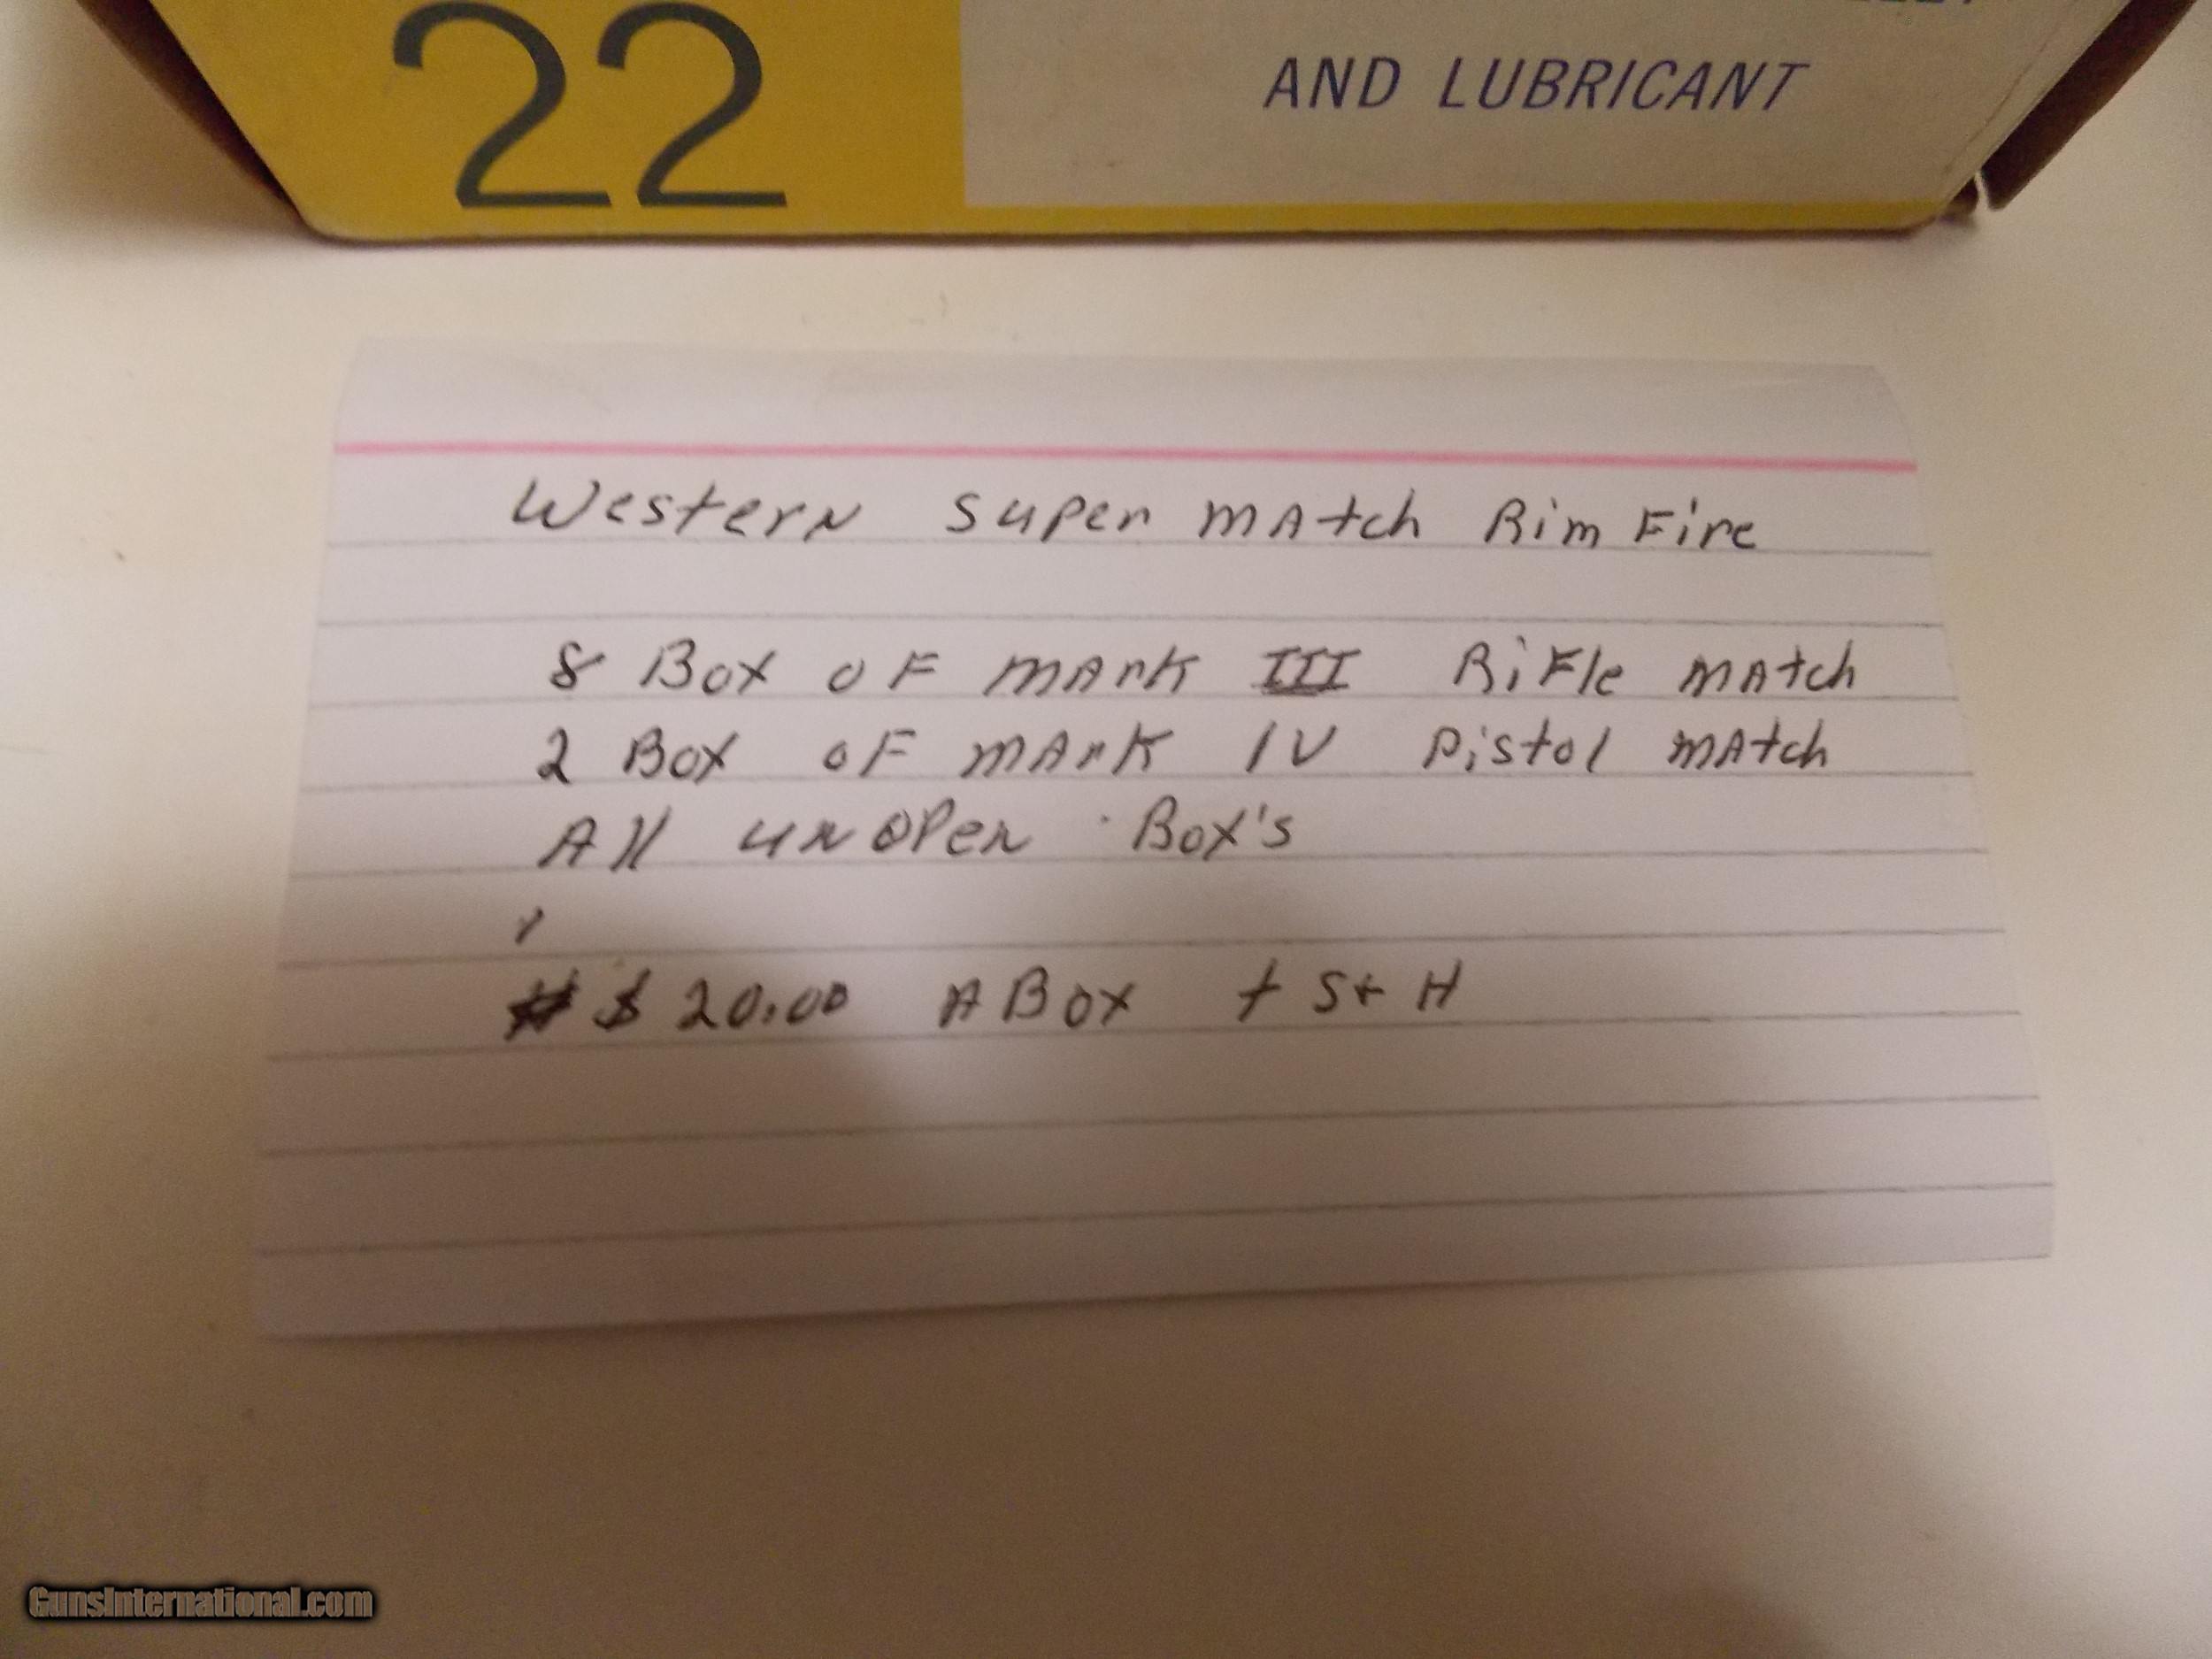 22
AND LUBRICANT
Western super match Rim Fire
8 Box of mark III Rifle match
2 Box of mark IV Pistol match
All unopen Box's
$20.00 A Box + S + H
GunsInternational.com